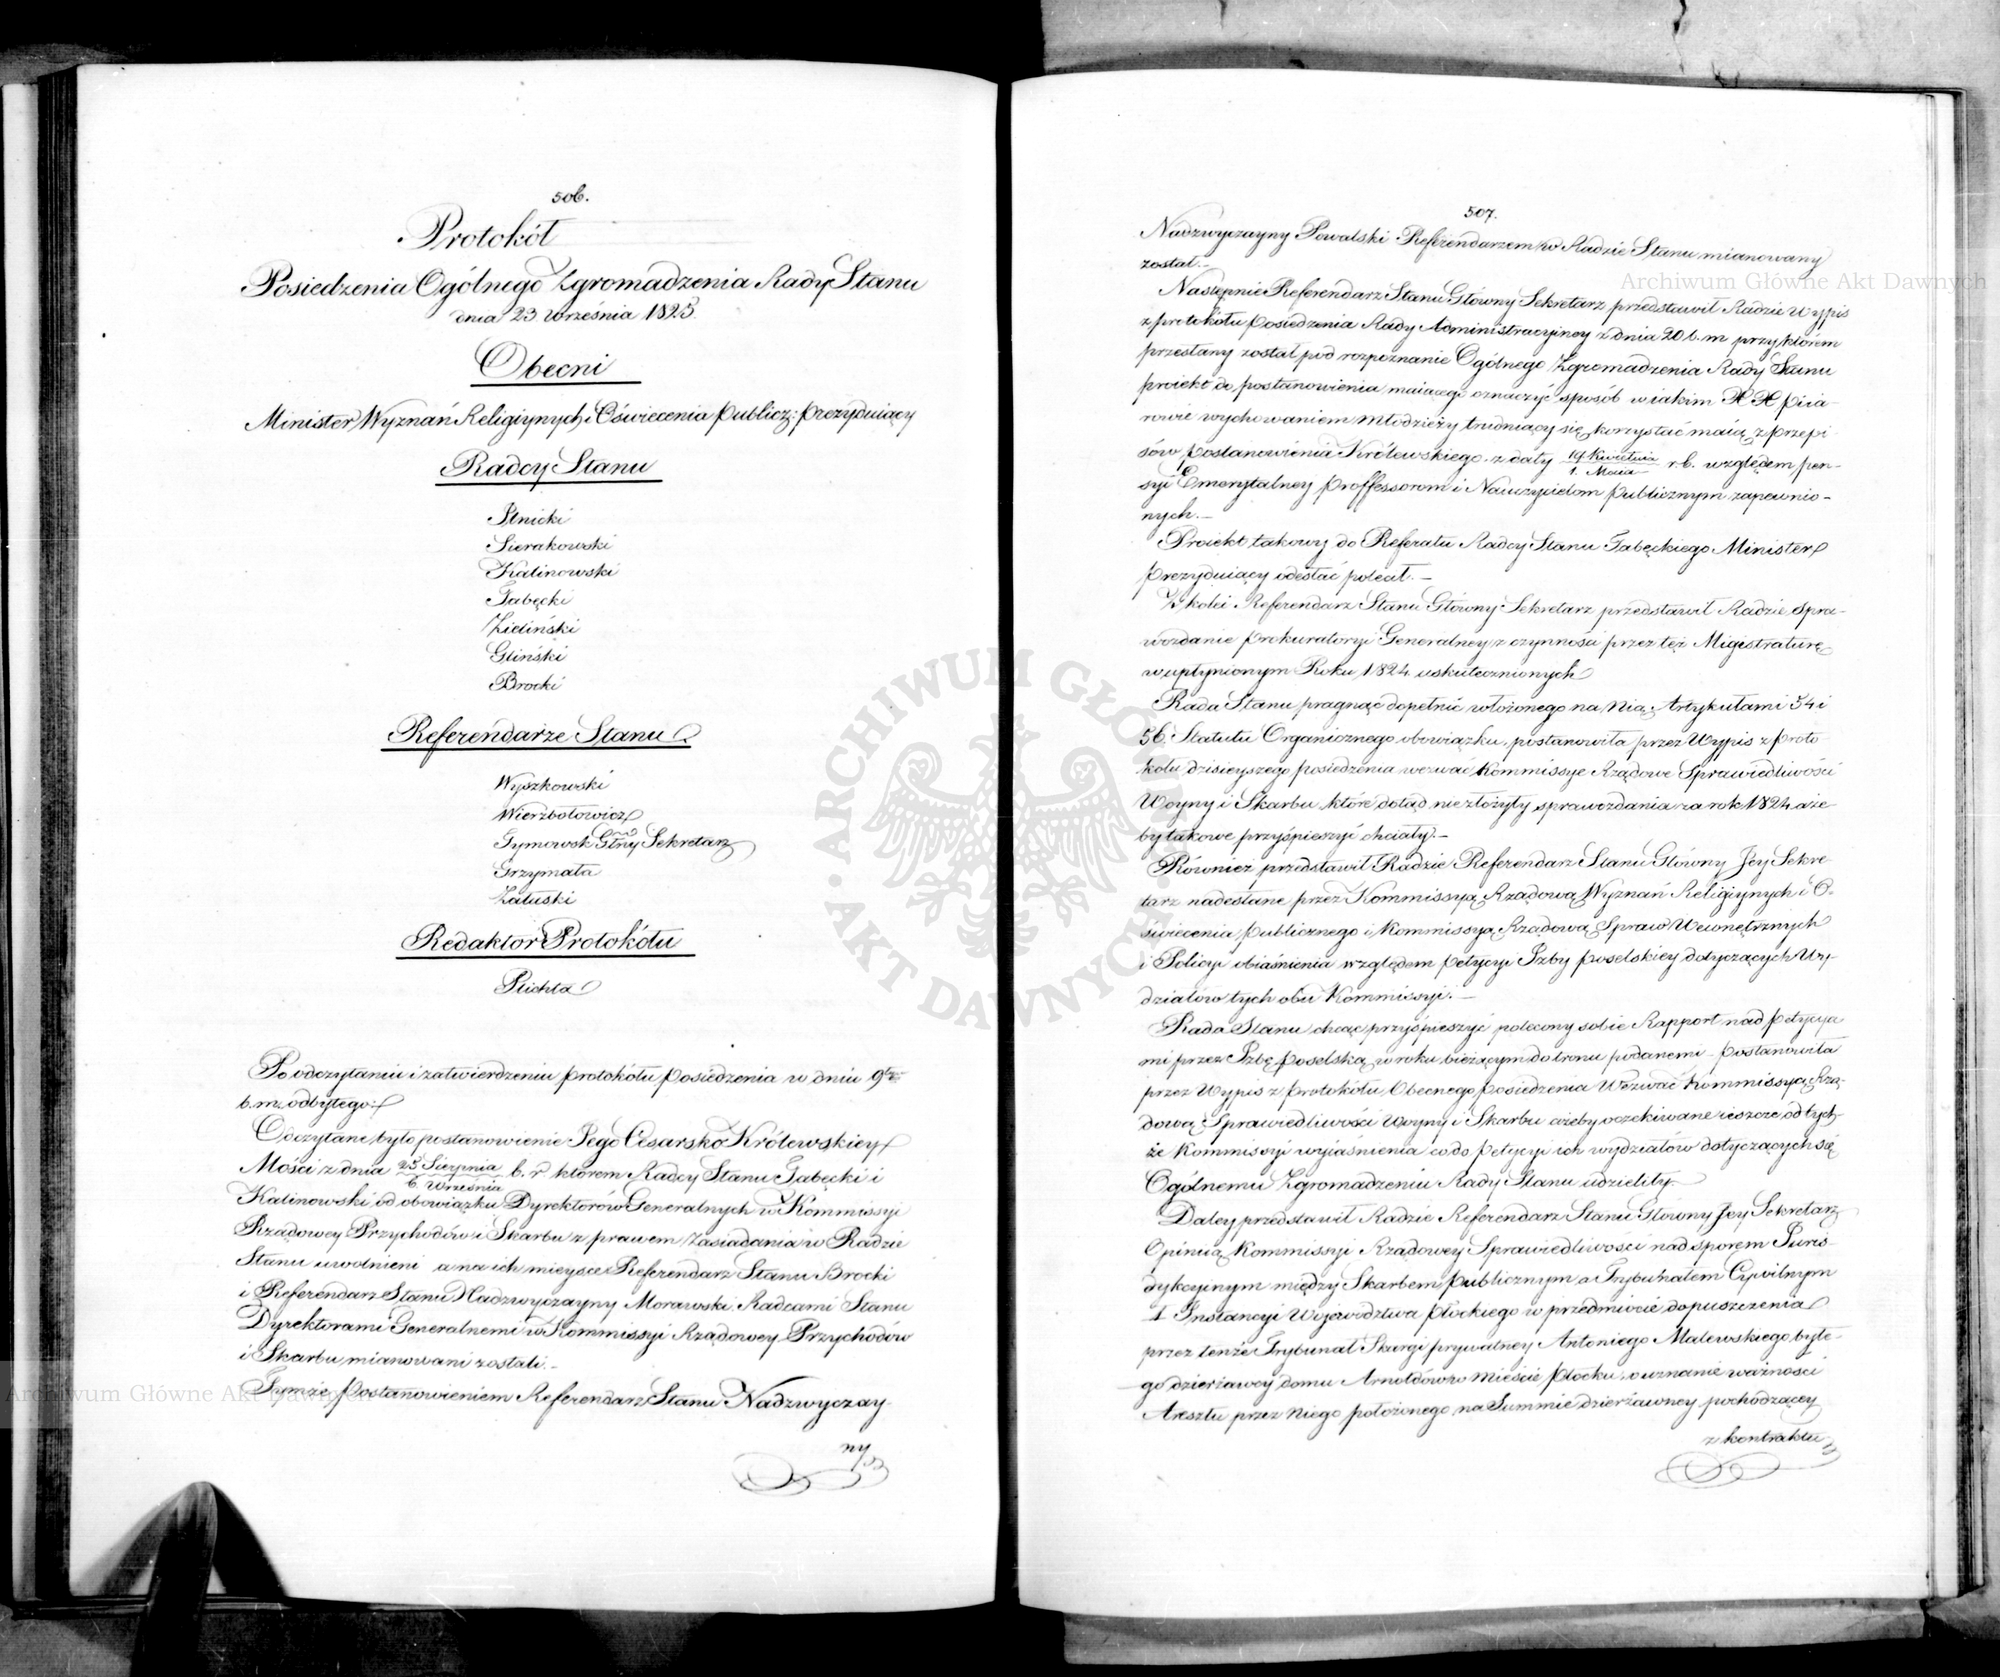 506.
Protokół
Posiedzenia Ogólnego Zgromadzenia Rady Stanu
dnia 23 Września 1825.
Obecni
Minister Wyznań Religiynych i Oświecenia Publicz: prezyduiący
Radcy Stanu
Staszic
Sierakowski
Kalinowski
Gabęcki
Zieliński
Gliński
Brocki
Referendarze Stanu
Wyszkowski
Wierzbołowicz
Tymowski Głny Sekretarz
Grzymała
Załuski
Redaktor Protokółu
Plichta
Po odczytaniu i zatwierdzeniu protokółu posiedzenia w dniu 9tym
b. m. odbytego:
Odczytane było postanowienie Jego Cesarsko Królewskiey
Mości z dnia 25 Sierpnia / 6 Września b. r. którem Radcy Stanu Gabęcki i
Kalinowski od obowiązku Dyrektorów Generalnych w Kommissyi
Rządowey Przychodów i Skarbu z prawem zasiadania w Radzie
Stanu uwolnieni a na ich mieysce Referendarz Stanu Brocki
i Referendarz Stanu Nadzwyczayny Morawski Radcami Stanu
Dyrektorami Generalnemi w Kommissyi Rządowey Przychodów
i Skarbu mianowani zostali.
Tymże postanowieniem Referendarz Stanu Nadzwyczay-
ny
507.
Nadzwyczayny Powalski Referendarzem w Radzie Stanu mianowany
został.
Następnie Referendarz Stanu Główny Sekretarz przedstawił Radzie Wypis
z protokółu posiedzenia Rady Administracyiney z dnia 20 b. m przy którém
przesłany został pod rozpoznanie Ogólnego Zgromadzenia Rady Stanu
proiekt do postanowienia maiącego oznaczyć sposób w iakim XX pija-
rowie wychowaniem młodzieży trudniący się korzystać maią z przepi-
sów postanowienia Królewskiego z daty 19 Kwietnia / 1. Maia r. b. względem pen-
syi Emerytalney proffessorom i Nauczycielom publicznym zapewnio-
nych.
Proiekt takowy do Referatu Radcy Stanu Gabęckiego Minister
prezyduiący odesłać polecił.
Z kolei Referendarz Stanu Główny Sekretarz przedstawił Radzie spra-
wozdanie prokuratoryi Generalney z czynności przez też Magistraturę
w upłynionym Roku 1824 uskutecznionych
Rada Stanu pragnąc dopełnić włożonego na Nią Artykułami 54 i
56. Statutu Organicznego obowiązku, postanowiła przez Wypis z proto-
kółu dzisieyszego posiedzenia wezwać Kommissye Rządowe Sprawiedliwości
Woyny i Skarbu które dotąd nie złożyły sprawozdania za rok 1824 aże
by takowe przyśpieszyć chciały.
Również przedstawił Radzie Referendarz Stanu Główny Jey Sekre-
tarz nadesłane przez Kommissyą Rządową Wyznań Religiynych i O-
świecenia publicznego i Kommissyą Rządową Spraw Wewnętrznych
i Policyi obiaśnienia względem petycyi Izby poselskiey dotyczących Wy-
działów tych obu Kommissyi.
Rada Stanu chcąc przyśpieszyć polecony sobie Rapport nad petycya
mi przez Izbę poselską w roku bieżącym do tronu podanemi postanowiła
przez Wypis z protokółu Obecnego posiedzenia Wezwać Kommissyą Rzą-
dową Sprawiedliwości Woyny i Skarbu ażeby oczekiwane ieszcze od tych-
że Kommissyi wyiaśnienia co do petycyi ich wydziałów dotyczących się
Ogólnemu Zgromadzeniu Rady Stanu udzieliły.
Daley przedstawił Radzie Referendarz Stanu Główny Jey Sekretarz
Opinią Kommissyi Rządowey Sprawiedliwości nad sporem Juris-
dykcyinym między Skarbem publicznym a Trybunałem Cywilnym
1 Instancyi Województwa Płockiego w przedmiocie dopuszczenia
przez tenże Trybunał Skargi prywatney Antoniego Malewskiego byłe-
go dzierżawcy domu Arnoldów w Mieście Płocku, o uznanie ważności
Aresztu przez Niego położonego na Summie dzierżawney pochodzącey
z kontraktu
Archiwum Główne Akt Dawnych
Archiwum Główne Akt Dawnych
ARCHIWUM GŁÓWNE AKT DAWNYCH